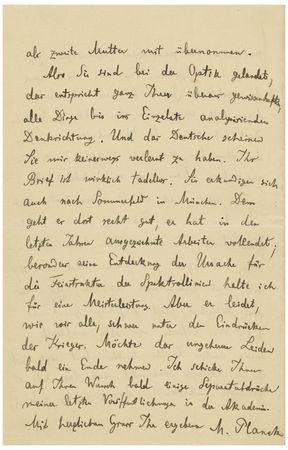 als zweite Mutter mit übernommen.
Also Sie sind bei der Optik gelandet,
das entspricht ganz Ihrer überaus gewissenhaften,
alle Dinge bis ins Einzelne analysierenden
Denkrichtung. Und das Deutsche scheinen
Sie mir keineswegs verlernt zu haben. Ihr
Brief ist wirklich tadellos. Sie erkundigen sich
auch nach Sommerfeld in München. Dem
geht es dort recht gut, er hat in den
letzten Jahren ausgezeichnete Arbeiten vollendet;
besonders seine Entdeckung der Ursache für
die Feinstruktur der Spektrallinien halte ich
für eine Meisterleistung. Aber er leidet,
wie wir alle, schwer unter den Eindrücken
des Krieges. Möchte das ungeheure Leiden
bald ein Ende nehmen. Ich schicke Ihnen
auf Ihren Wunsch bald einige Separatabdrücke
meiner letzten Veröffentlichungen in der Akademie.
Mit herzlichem Gruss Ihr ergebener M. Planck